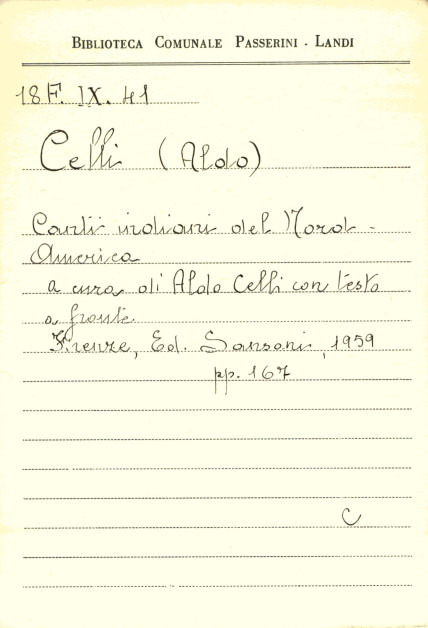 BIBLIOTECA COMUNALE PASSERINI - LANDI
18F. IX. 41
Celli (Aldo)
Canti indiani del Nord -
America
a cura di Aldo Celli con testo
a fronte
Firenze, Ed. Sansoni, 1959
pp. 167
C